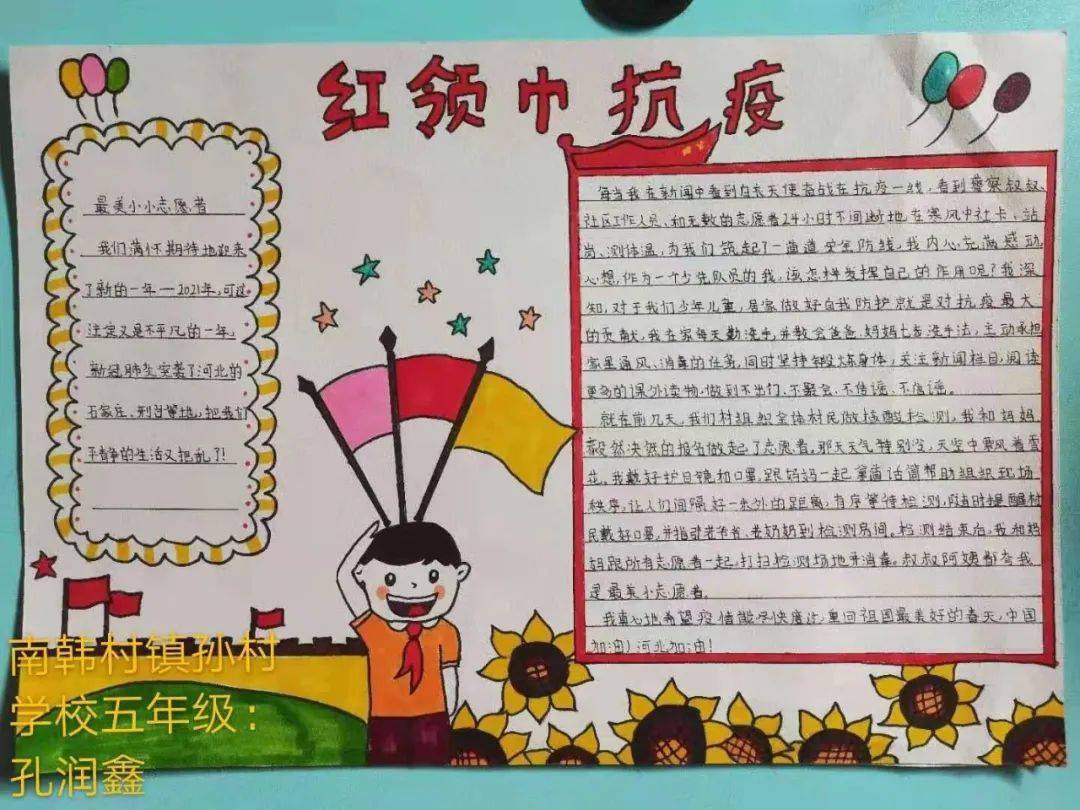 红领巾抗疫
最美小小志愿者
我们满怀期待地迎来
了新的一年——2021年,可这
注定又是不平凡的一年,
新冠肺炎突袭了河北的
石家庄、邢台等地,把我们
平静的生活又把乱了!
每当我在新闻中看到白衣天使奋战在抗疫一线,看到警察叔叔、
社区工作人员、和无数的志愿者24小时不间断地在寒风中社卡、站
岗、测体温,为我们筑起了一道道安全防线,我内心充满感动,
心想,作为一个少先队员的我,该怎样发挥自己的作用呢?我深
知,对于我们少年儿童,居家做好自我防护就是对抗疫最大
的贡献,我在家每天勤洗手,并教会爸爸、妈妈七步洗手法,主动承担
家里通风、消毒的任务,同时坚持锻炼身体,关注新闻栏目,阅读
更多的课外读物,做到不出门、不聚会、不传谣、不信谣。
就在前几天,我们村组织全体村民做核酸检测,我和妈妈
毅然决然的报名做起了志愿者,那天天气特别冷,天空中寒风着雪
花,我戴好护目镜和口罩,跟妈妈一起拿着话筒帮助组织现场
秩序,让人们间隔好一米外的距离,有序等待检测,随时提醒村
民戴好口罩,并指引老爷爷、老奶奶到检测房间。检测结束后,我和妈
妈跟所有志愿者一起,打扫检测场地并消毒。叔叔阿姨都夸我
是最美小志愿者。
我真心地希望疫情能尽快度过,重回祖国最美好的春天,中国
加油!河北加油!
南韩村镇孙村
学校五年级:
孔润鑫